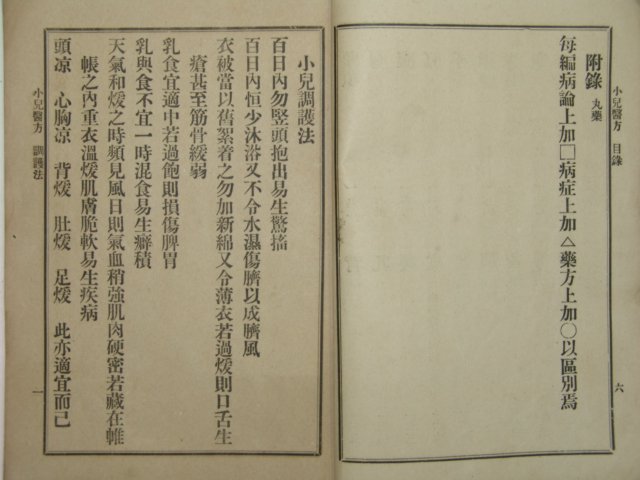 小兒醫方 目錄
附錄 丸藥
每編病論上加□病症上加△藥方上加○以區別焉
六
小兒調護法
百日內勿竪頭抱出易生驚搐
百日內恒少沐浴又不令水濕傷臍以成臍風
衣被當以舊絮着之勿加新綿又令薄衣若過煖則口舌生
瘡甚至筋骨緩弱
乳食宜適中若過飽則損傷脾胃
乳與食不宜一時混食易生癖積
天氣和煖之時頻見風日則氣血稍強肌肉硬密若藏在帷
帳之內重衣溫煖肌膚脆軟易生疾病
頭凉 心胸凉 背煖 肚煖 足煖 此亦適宜而已
小兒醫方 調護法
一